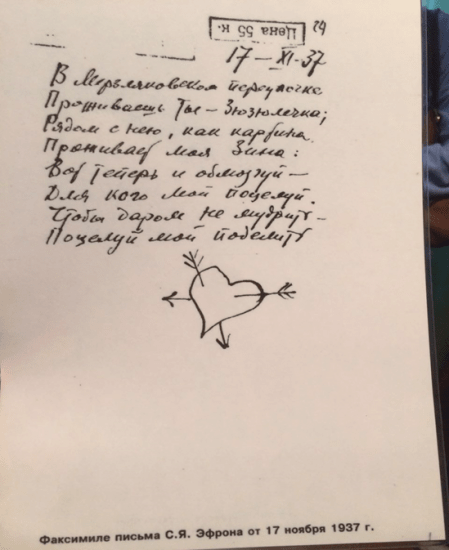 24
Цена 55 к.
17 — XI - 37
В Мерзляковском переулке
Проживаешь Ты — Зюзюлечка;
Рядом с нею, как картина
Проживает моя Зина:
Вот теперь и обмозгуй —
Для кого мой поцелуй.
Чтобы даром не мудрить —
Поцелуй мой поделить
Факсимиле письма С.Я. Эфрона от 17 ноября 1937 г.